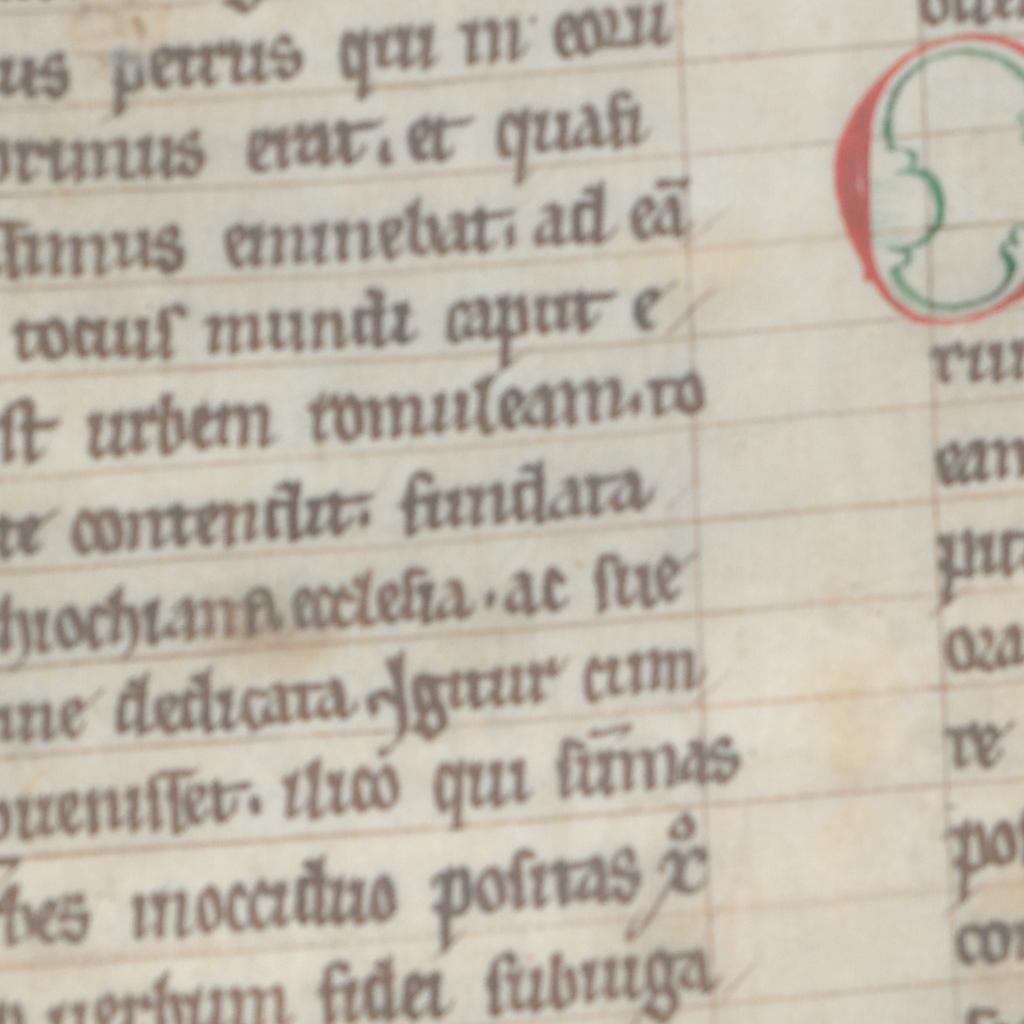 us petrus qui in eoru
primus erat. et quasi
timus eminebat. ad eā
totius mundi caput e
st urbem romuleam. ro
te contendit. fundata
thiochiana ecclesia. ac sue
ine dedicata. Igitur cum
uenisset. ilico qui sūmas
bes inoccíduo positas xº
uerbum fidei subiuga
C
rum
eam
pit
ora
re
pos
con